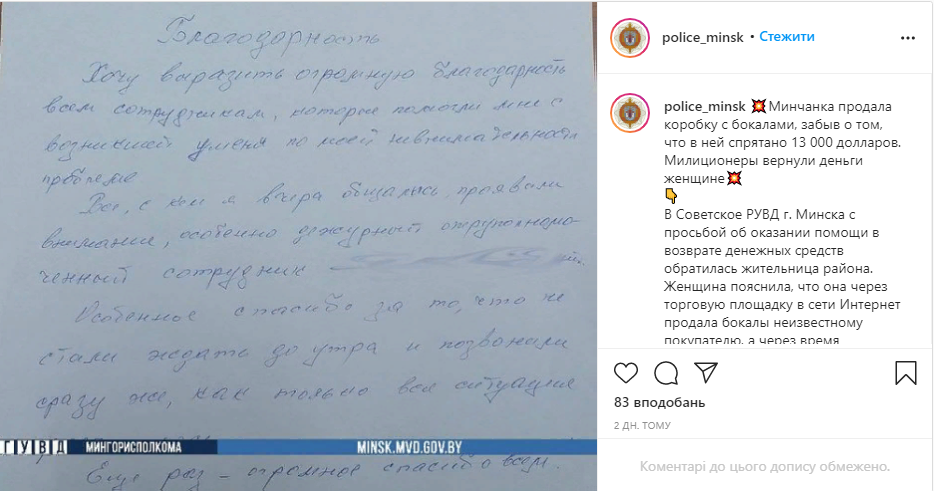 Благодарность
Хочу выразить огромную благодарность
всем сотрудникам, которые помогли мне с
возникшей у меня по моей невнимательности
проблеме
Все, с кем я вчера общалась, проявили
внимание, особенно дежурный
ченный сотрудник
Особенное спасибо за то, что не
стали ждать до утра и позвонили
сразу же, как только вся ситуация
ГУВД МИНГОРИСПОЛКОМА MINSK.MVD.GOV.BY
Еще раз – огромное спасибо всем.
police_minsk • Стежити
police_minsk 💥Минчанка продала
коробку с бокалами, забыв о том,
что в ней спрятано 13 000 долларов.
Милиционеры вернули деньги
женщине💥
👇
В Советское РУВД г. Минска с
просьбой об оказании помощи в
возврате денежных средств
обратилась жительница района.
Женщина пояснила, что она через
торговую площадку в сети Интернет
продала бокалы неизвестному
покупателю, а через время
83 вподобань
2 ДН. ТОМУ
Коментарі до цього допису обмежено.